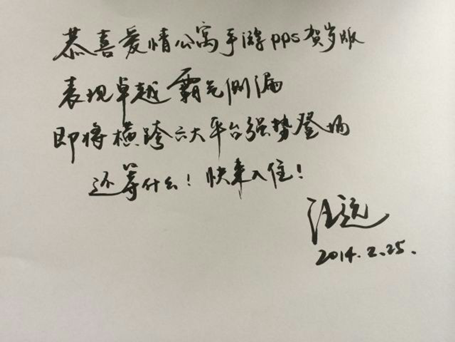 恭喜爱情公寓手游pps贺岁版
表现卓越霸气侧漏
即将横跨六大平台强势登场
还等什么！快来入住！
汪远
2014.2.25.